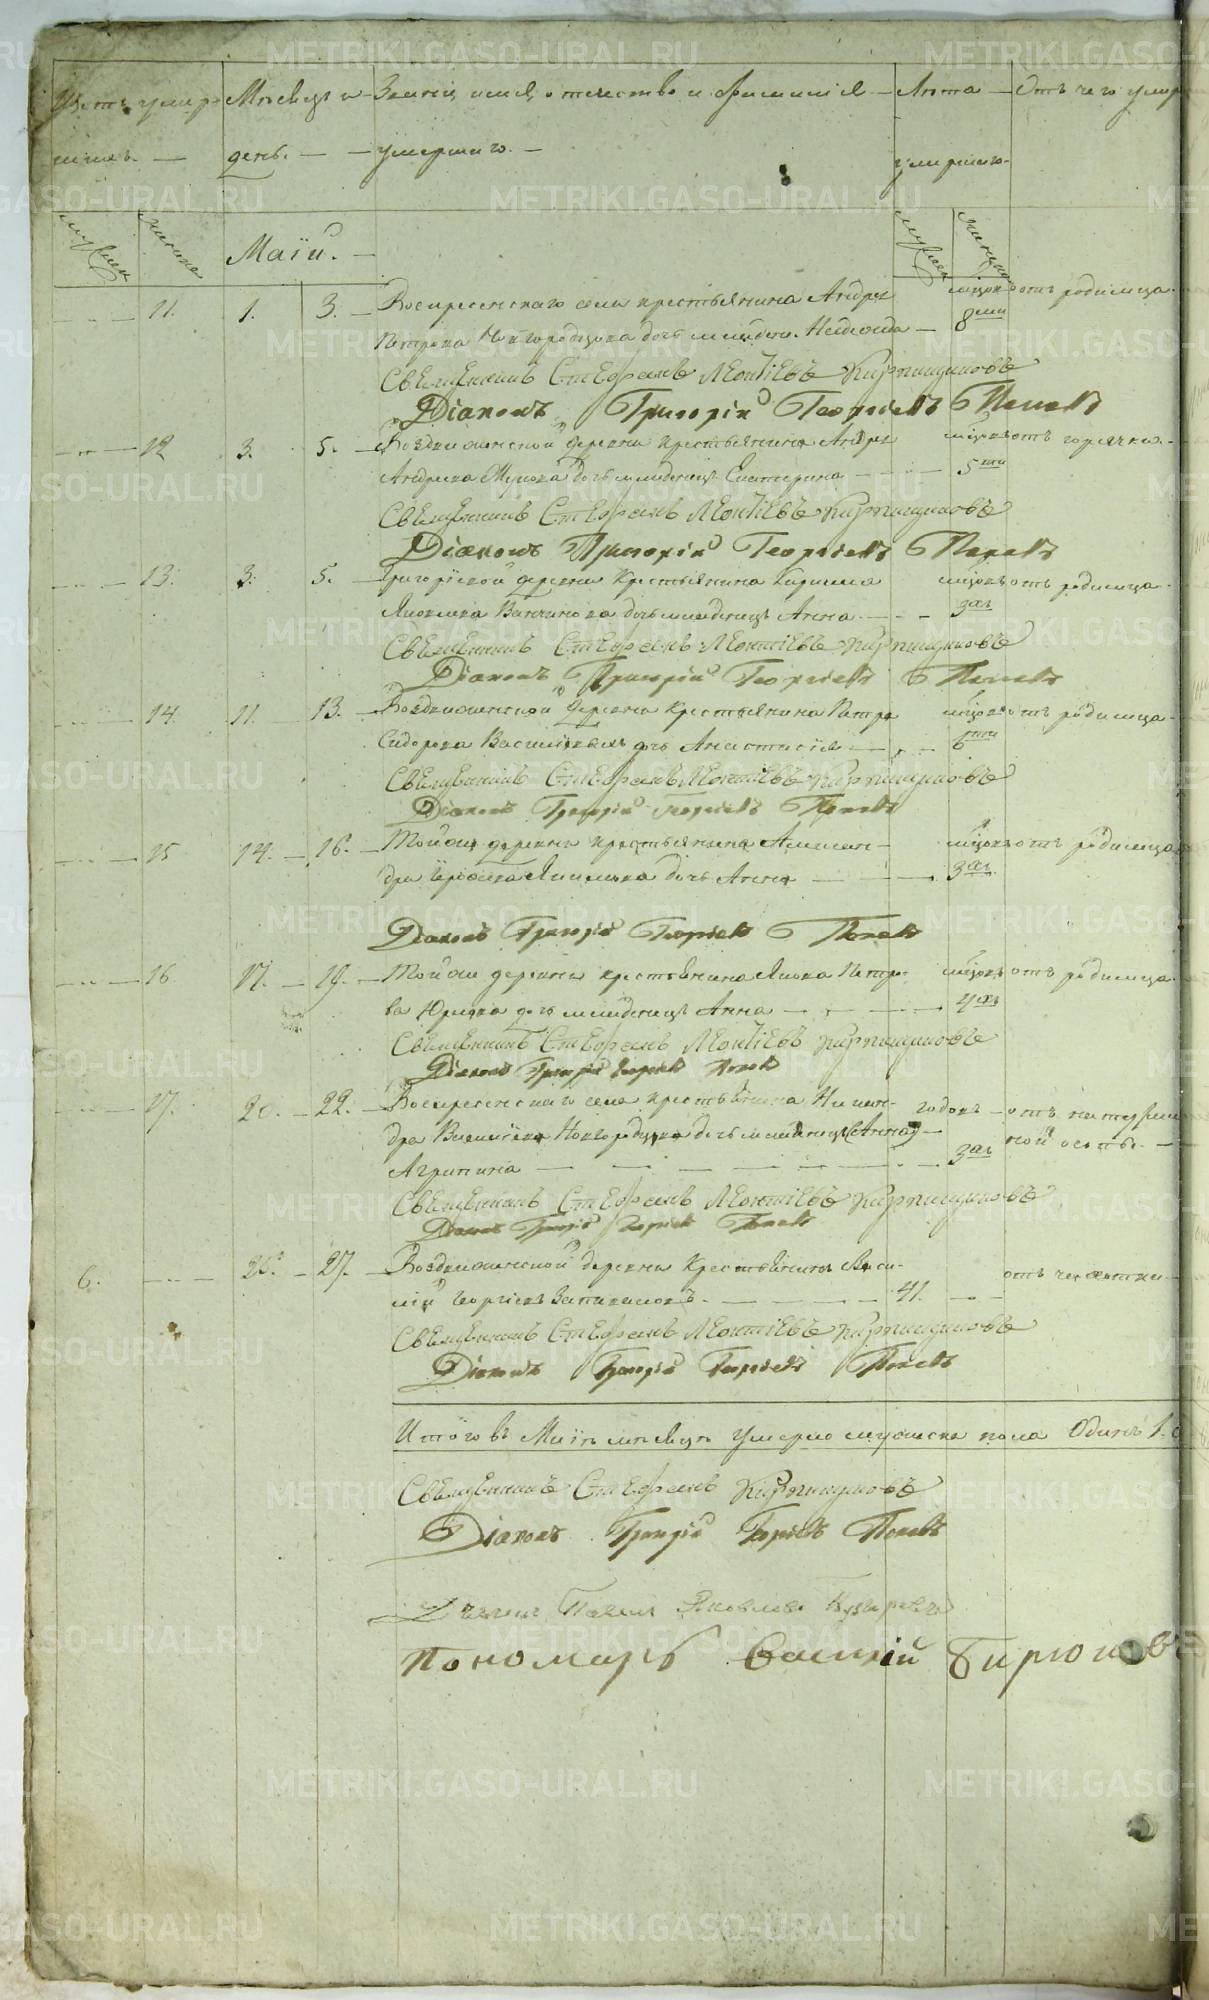 Мѣсяцъ и Званіе, имя, отечество и фамилія Лѣта Отъ чего умер
день. умершаго. умершаго.
мужеск женска Маій. мужеск женска
11. 1. 3. Воскресенскаго села крестьянина Андрея мѣсяц отъ родимца.
Петрова Новгородцова дочь младен. 8ми
Священникъ Стефанъ Леонтіевъ Кирпищиковъ
Діаконъ Григорій Георгіевъ Поповъ
12 3. 5. Воздвиженской деревни крестьянина Андрея отъ горячки.
Андреева дочь младенецъ Екатерина 5ти
Священникъ Стефанъ Леонтіевъ Кирпищиковъ
Діаконъ Григорій Георгіевъ Поповъ
13. 3. 5. Григорьевской деревни крестьянина Кирилла отъ родимца.
Яковлева дочь младенецъ Анна 3хъ
Священникъ Стефанъ Леонтіевъ Кирпищиковъ
Діаконъ Григорій Георгіевъ Поповъ
14. 11. 13. Воздвиженской деревни крестьянина Петра отъ родимца.
Сидорова дочь Анастасія 6ти
Священникъ Стефанъ Леонтіевъ Кирпищиковъ
Діаконъ Григорій Георгіевъ Поповъ
15 14. 16. Той же деревни крестьянина Алексан- отъ родимца
дра дочь Анна 3хъ
Діаконъ Григорій Георгіевъ Поповъ
16 17. 19. Той же деревни крестьянина Якова Петро- отъ родимца.
ва дочь младенецъ Анна 4хъ
Священникъ Стефанъ Леонтіевъ Кирпищиковъ
Діаконъ Григорій Георгіевъ Поповъ
17. 20. 22. Воскресенскаго села крестьянина Никан- годовъ отъ натураль
дра Васильева Новгородцова дочь младенецъ (Анна) 3хъ ной оспы.
Агрипина
Священникъ Стефанъ Леонтіевъ Кирпищиковъ
Діаконъ Григорій Георгіевъ Поповъ
6. 25. 27. Воздвиженской деревни крестьянинъ Васи- отъ чахотки
лій Георгіевъ 41.
Священникъ Стефанъ Леонтіевъ Кирпищиковъ
Діаконъ Григорій Георгіевъ Поповъ
Итого въ Маіи мѣсяцѣ умерло мужеска пола Одинъ 1.
Священникъ Стефанъ Кирпищиковъ
Діаконъ Григорій Георгіевъ Поповъ
Павелъ Яковлевъ
Пономарь Василій Бирюковъ
METRIKI.GASO-URAL.RU